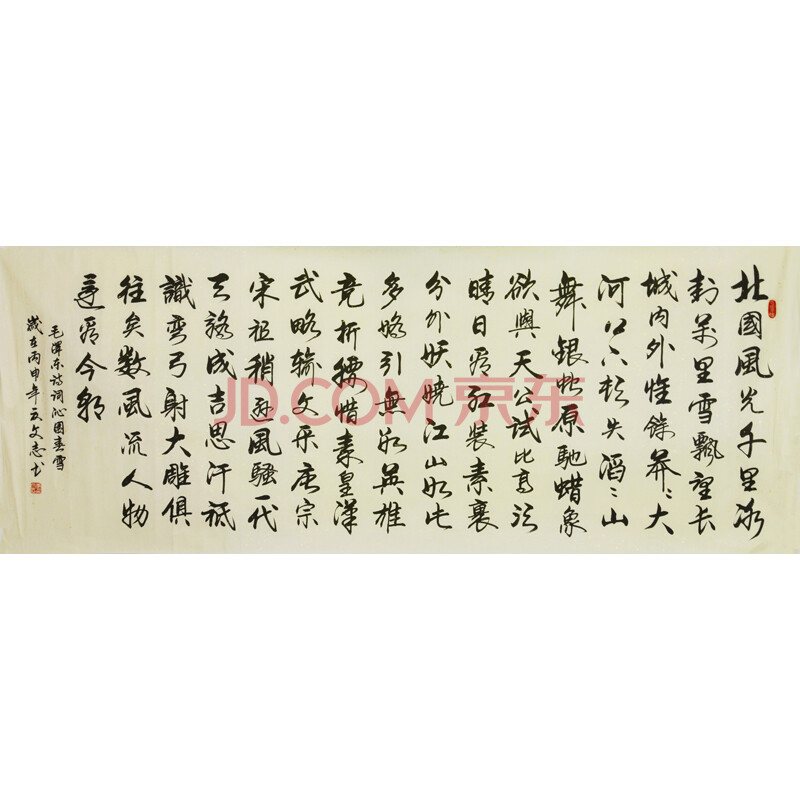 北國風光千里冰
封萬里雪飄望長
城内外惟餘莽々大
河上下頓失滔々山
舞銀蛇原馳蜡象
欲與天公試比高須
晴日看紅裝素裹
分外妖嬈江山如此
多嬌引無數英雄
竞折腰惜秦皇漢
武略输文采唐宗
宋祖稍遜風騷一代
天驕成吉思汗祇
識彎弓射大雕俱
往矣數風流人物
還看今朝
毛澤东诗词沁園春雪
歲在丙申年夏文志书
JD.COM 京东